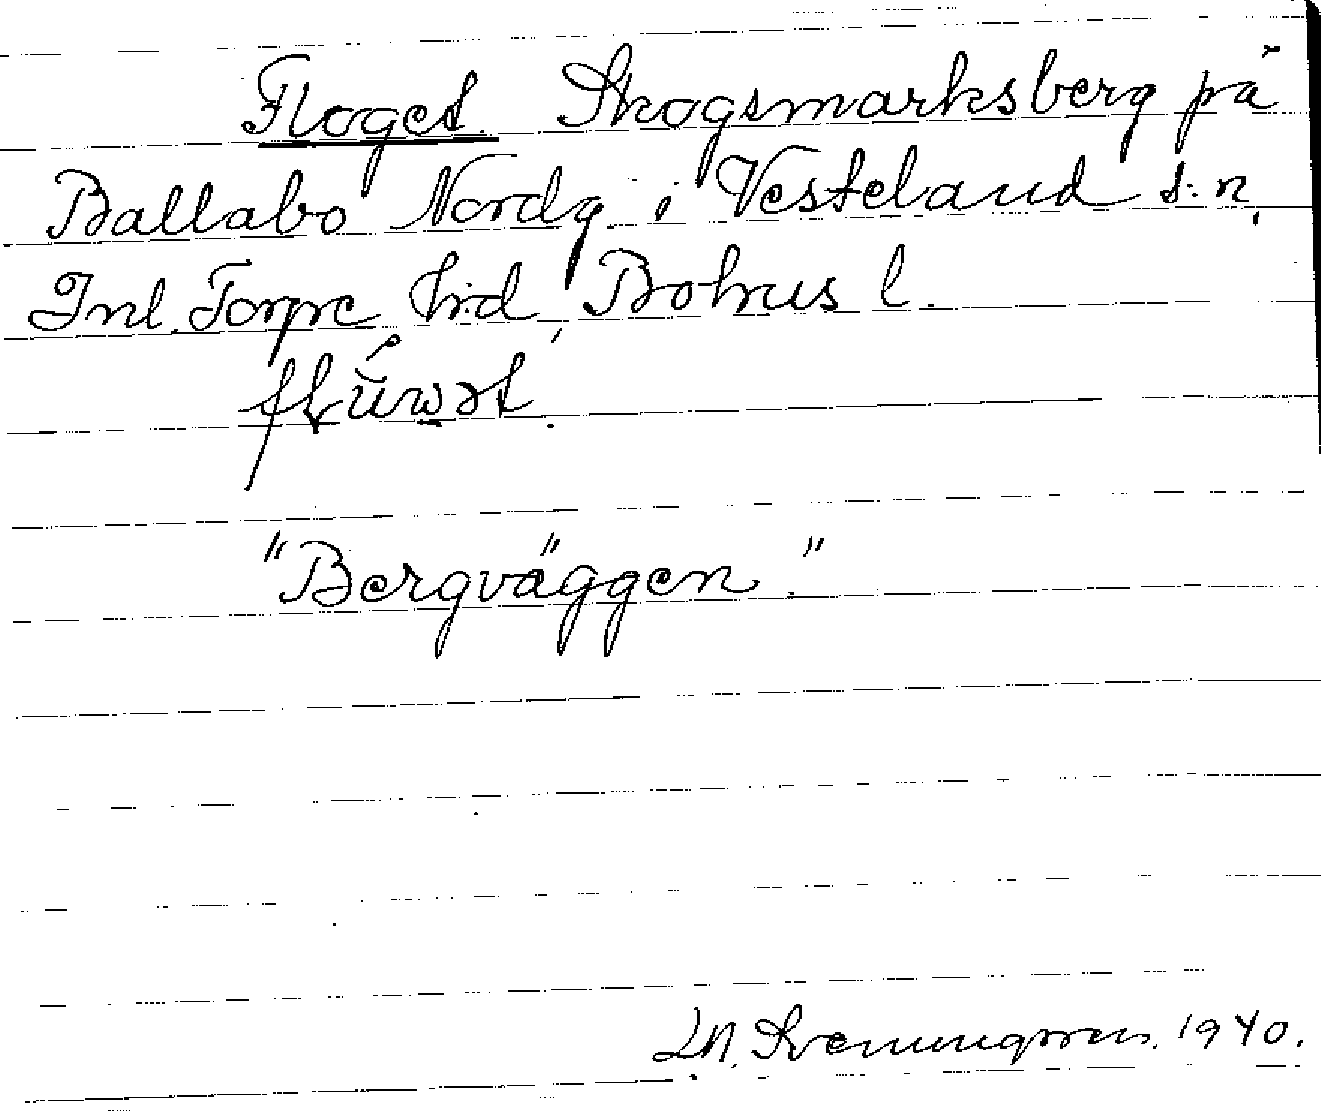 Floget Skogsmarksberg på
Ballabo Nordg. i Vesteland s:n,
Inl. Torpe h:d, Bohus l.
"Bergväggen."
Sveningsson. 1940.